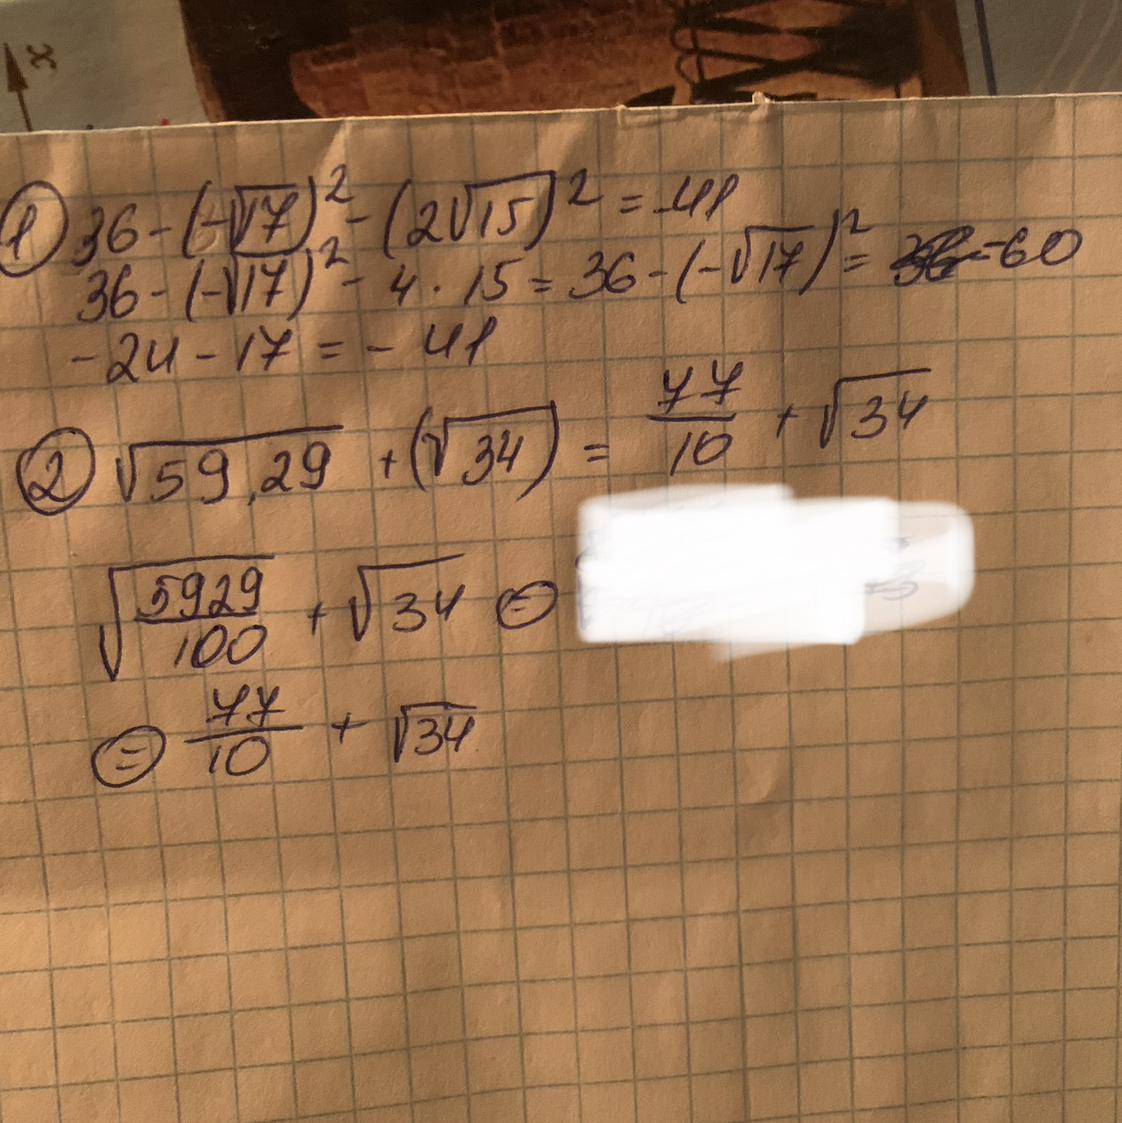 x
① 36 - (-√17)² - (2√15)² = -41
36 - (-√17)² - 4 · 15 = 36 - (-√17)² = -60
-24 - 17 = -41
② √59,29 + (√34) = 77/10 + √34
√5929/100 + √34 ⊜
⊜ 77/10 + √34